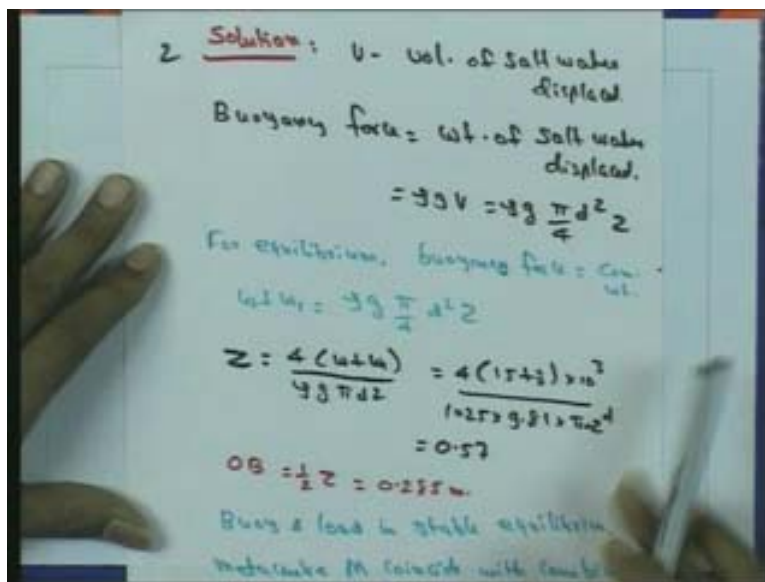 2 Solution: V - vol. of salt water
displaced.
Buoyancy force = wt. of salt water
displaced.
= ρgV = ρg π/4 d² z
For equilibrium, buoyancy force = Com.
wt.
= ρg π/4 d² z
Z = 4(W+W₁)/ρgπd² = 4(15+2)×10³/
= 0.57
OB = 1/2 Z = 0.285 m.
Buoy & load in stable equilibrium
metacentre M coincide with